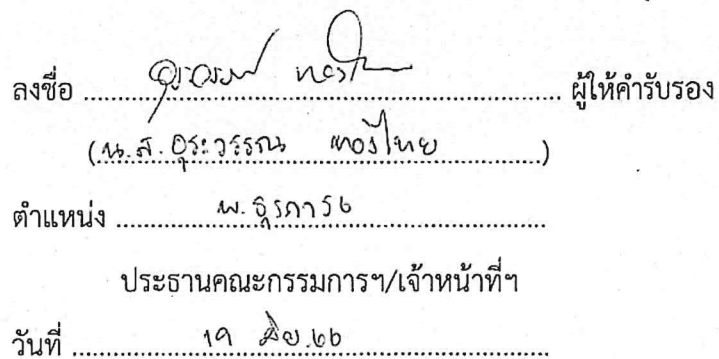 ลงชื่อ ........ ผู้ให้คำรับรอง
(น.ส. อุระวรรณ ทองไทย)
ตำแหน่ง พ. ธุรการ ๖
ประธานคณะกรรมการฯ/เจ้าหน้าที่ฯ
วันที่ 19 มิย. ๖๖